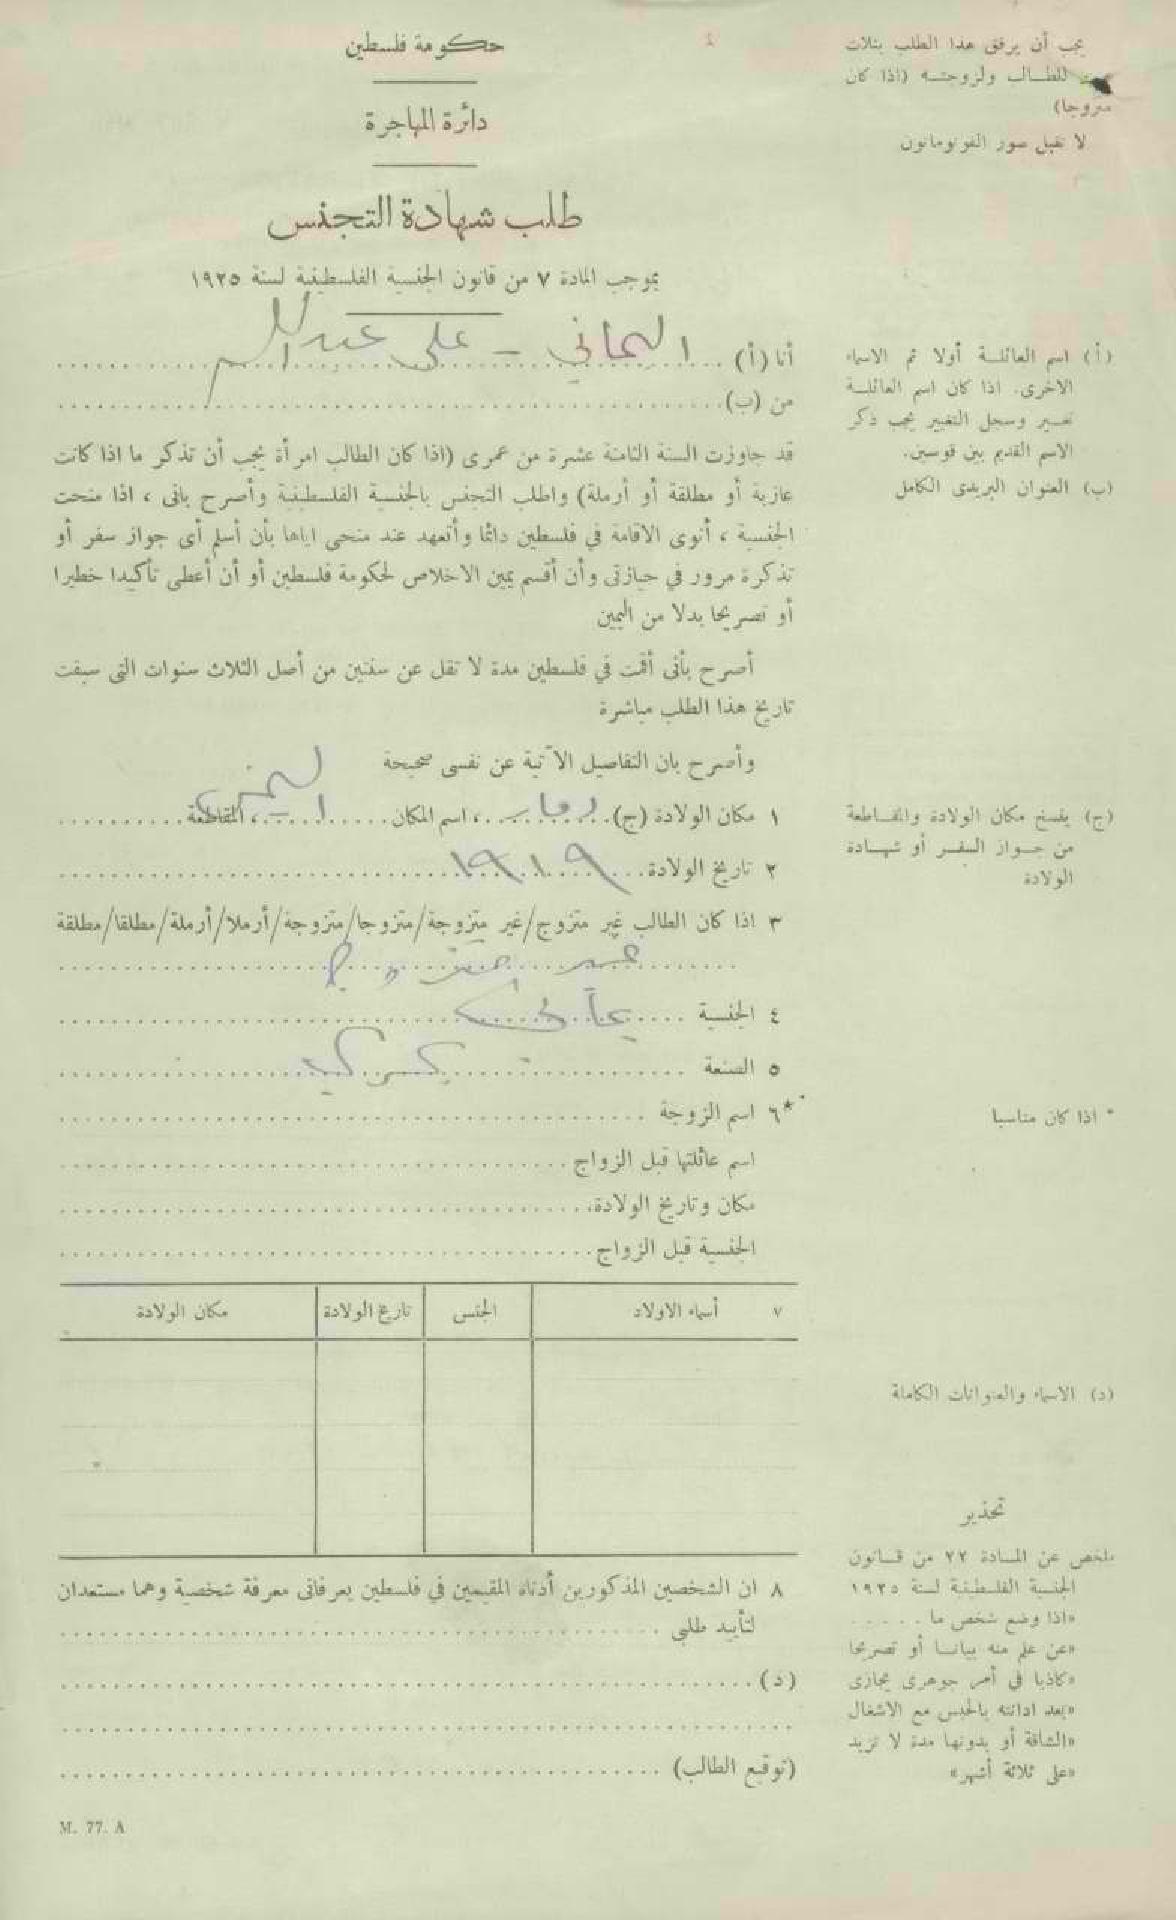 حكومة فلسطين
دائرة المهاجرة
طلب شهادة التجنس
بموجب المادة ٧ من قانون الجنسية الفلسطينية لسنة ١٩٢٥
يجب أن يرفق هذا الطلب بثلاث
للطالب ولزوجته (اذا كان
متزوجا)
لا تقبل صور الفوتوماتون
أنا (أ) اليماني - على عبد الله
من (ب)
قد جاوزت السنة الثامنة عشرة من عمرى (اذا كان الطالب امرأة يجب أن تذكر ما اذا كانت
عازبة أو مطلقة أو أرملة) واطلب التجنس بالجنسية الفلسطينية وأصرح بانى ، اذا منحت
الجنسية ، أنوى الاقامة في فلسطين دائما وأتعهد عند منحى اياها بأن أسلم أى جواز سفر أو
تذكرة مرور في حيازتى وأن أقسم يمين الاخلاص لحكومة فلسطين أو أن أعطى تأكيدا خطيرا
أو تصريحا بدلا من اليمين
أصرح بأنى أقمت في فلسطين مدة لا تقل عن سنتين من أصل الثلاث سنوات التى سبقت
تاريخ هذا الطلب مباشرة
وأصرح بان التفاصيل الآتية عن نفسى صحيحة
١ مكان الولادة (ج) ، اسم المكان ، المقاطعة اليمن
٢ تاريخ الولادة ١٩١٩
٣ اذا كان الطالب غير متزوج/غير متزوجة/متزوجا/متزوجة/أرملا/أرملة/مطلقا/مطلقة
غير متزوج
٤ الجنسية يمانى
٥ الصنعة
*٦ اسم الزوجة
اسم عائلتها قبل الزواج
مكان وتاريخ الولادة
الجنسية قبل الزواج
٧ أسماء الاولاد الجنس تاريخ الولادة مكان الولادة
٨ ان الشخصين المذكورين أدناه المقيمين في فلسطين يعرفانى معرفة شخصية وهما مستعدان
لتأييد طلبى
(د)
(توقيع الطالب)
(أ) اسم العائلة أولا ثم الاسماء
الاخرى. اذا كان اسم العائلة
تغير وسجل التغيير يجب ذكر
الاسم القديم بين قوسين.
(ب) العنوان البريدى الكامل
(ج) ينسخ مكان الولادة والمقاطعة
من جواز السفر أو شهادة
الولادة
* اذا كان مناسبا
(د) الاسماء والعنوانات الكاملة
تحذير
ملخص عن المادة ٢٢ من قانون
الجنسية الفلسطينية لسنة ١٩٢٥
«اذا وضع شخص ما .....
«عن علم منه بيانا أو تصريحا
«كاذبا في أمر جوهرى يجازى
«بعد ادانته بالحبس مع الاشغال
«الشاقة أو بدونها مدة لا تزيد
«على ثلاثة أشهر»
M. 77. A